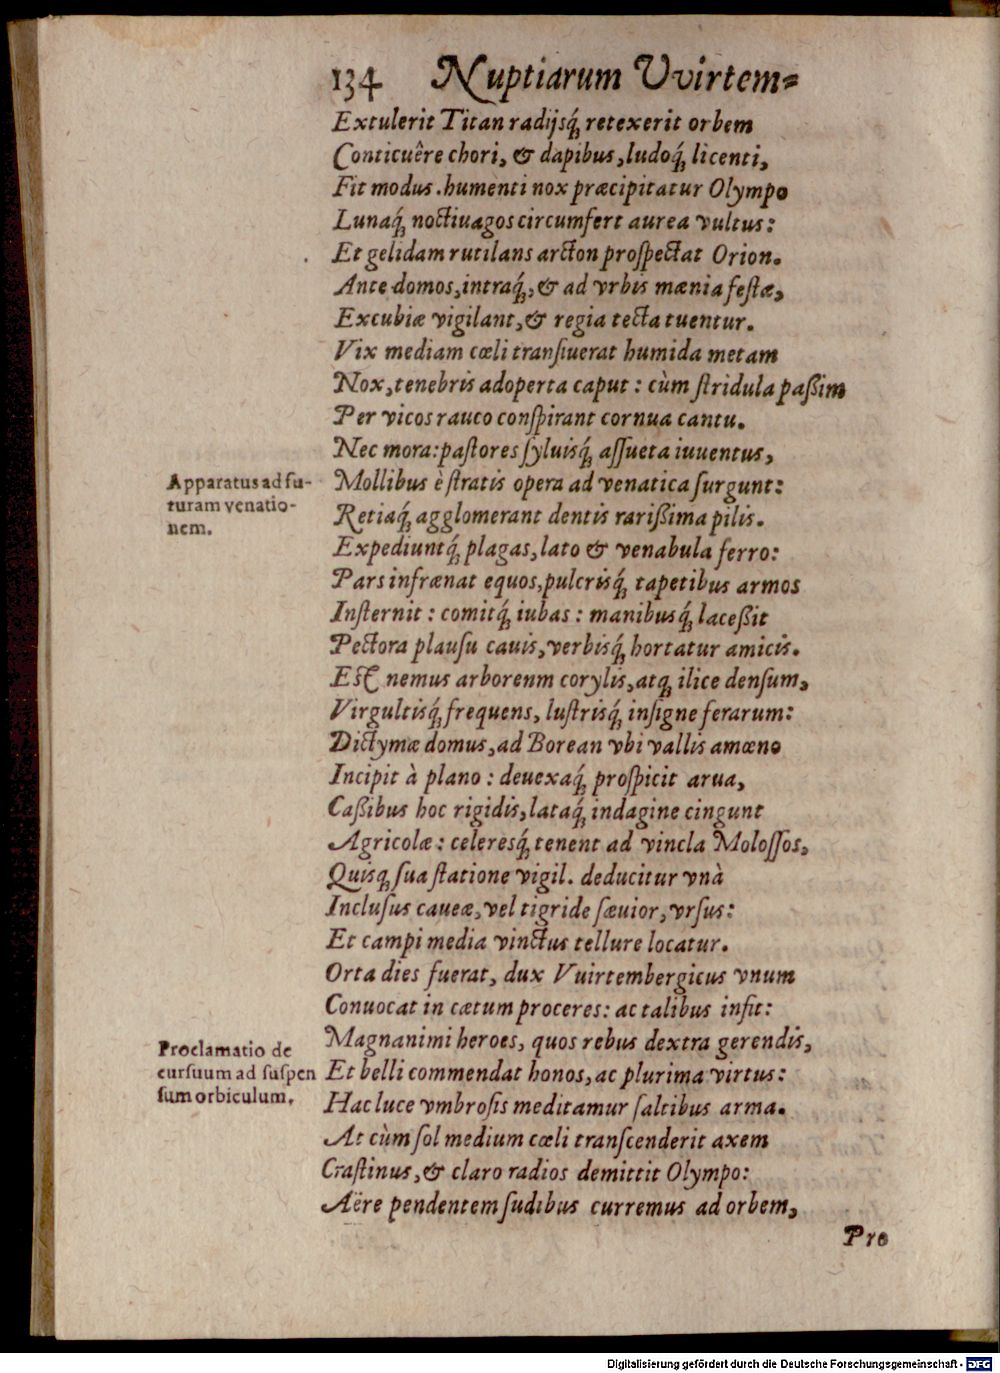 134 Nuptiarum Vvirtem⸗
Extulerit Titan radijsq́; retexerit orbem
Conticuêre chori, & dapibus, ludoq́; licenti,
Fit modus. humenti nox præcipitatur Olympo
Lunaq́; noctiuagos circumfert aurea vultus:
Et gelidam rutilans arcton proſpectat Orion.
Ante domos, intraq́;, & ad vrbis mænia feſtæ,
Excubiæ vigilant, & regia tecta tuentur.
Vix mediam cœli tranſiuerat humida metam
Nox, tenebris adoperta caput: cùm ſtridula paßim
Per vicos rauco conſpirant cornua cantu.
Nec mora: paſtores ſyluisq́; aſſueta iuuentus,
Apparatus ad fu-
turam venatio-
nem.
Mollibus è ſtratis opera ad venatica ſurgunt:
Retiaq́; agglomerant dentis rarißima pilis.
Expediuntq́; plagas, lato & venabula ferro:
Pars infrænat equos, pulcrisq́; tapetibus armos
Inſternit: comitq́; iubas: manibusq́; laceßit
Pectora plauſu cauis, verbisq́; hortatur amicis.
Eſt nemus arborenm corylis, atq; ilice denſum,
Virgultisq́; frequens, luſtrisq́; inſigne ferarum:
Dictymæ domus, ad Borean vbi vallis amœno
Incipit à plano: deuexaq́; proſpicit arua,
Caßibus hoc rigidis, lataq́; indagine cingunt
Agricolæ: celeresq́; tenent ad vincla Moloſſos,
Quisq; ſua ſtatione vigil. deducitur vnà
Incluſus caueæ, vel tigride ſæuior, vrſus:
Et campi media vinctus tellure locatur.
Orta dies fuerat, dux Vuirtembergicus vnum
Conuocat in cætum proceres: ac talibus inſit:
Magnanimi heroes, quos rebus dextra gerendis,
Proclamatio de
curſuum ad ſuſpen
ſum orbiculum.
Et belli commendat honos, ac plurima virtus:
Hac luce vmbroſis meditamur ſaltibus arma.
At cùm ſol medium cœli tranſcenderit axem
Craſtinus, & claro radios demittit Olympo:
Aëre pendentem ſudibus curremus ad orbem,
Pro
Digitalisierung gefördert durch die Deutsche Forschungsgemeinschaft - DFG